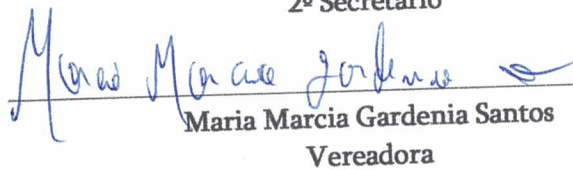 2º Secretário
Maria Marcia Gardenia
Maria Marcia Gardenia Santos
Vereadora